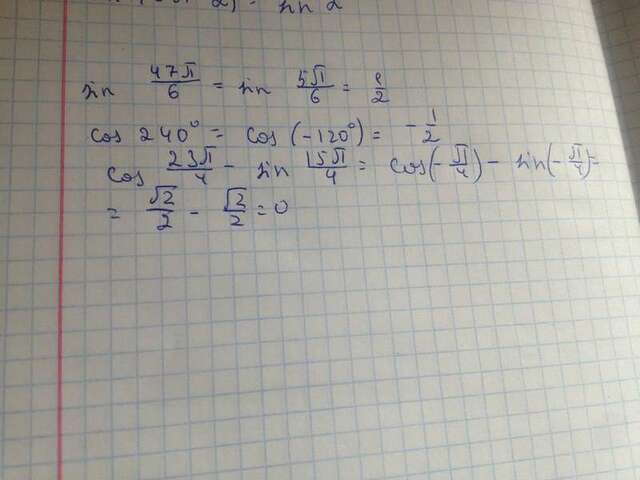 α) = sin α
sin 47π/6 = sin 5π/6 = 1/2
cos 240° = cos (-120°) = -1/2
cos 23π/4 - sin 15π/4 = cos(-π/4) - sin(-π/4) =
= √2/2 - √2/2 = 0